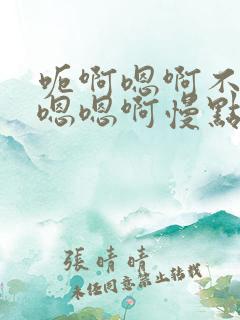 呃啊嗯啊不
嗯嗯啊慢點
張晴晴
未經同意禁止轉載